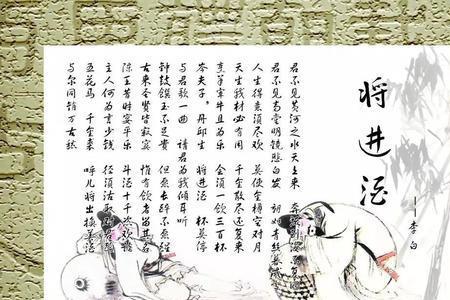 将进酒
——李白
君不见黄河之水天上来 奔流到海不复回
君不见高堂明镜悲白发 朝如青丝暮成雪
人生得意须尽欢 莫使金樽空对月
天生我材必有用 千金散尽还复来
烹羊宰牛且为乐 会须一饮三百杯
岑夫子,丹邱生 将进酒 杯莫停
与君歌一曲 请君为我倾耳听
钟鼓馔玉不足贵 但愿长醉不愿醒
古来圣贤皆寂寞 惟有饮者留其名
陈王昔时宴平乐 斗酒十千恣欢谑
主人何为言少钱 径须沽取对君酌
五花马 千金裘 呼儿将出换美酒
与尔同销万古愁